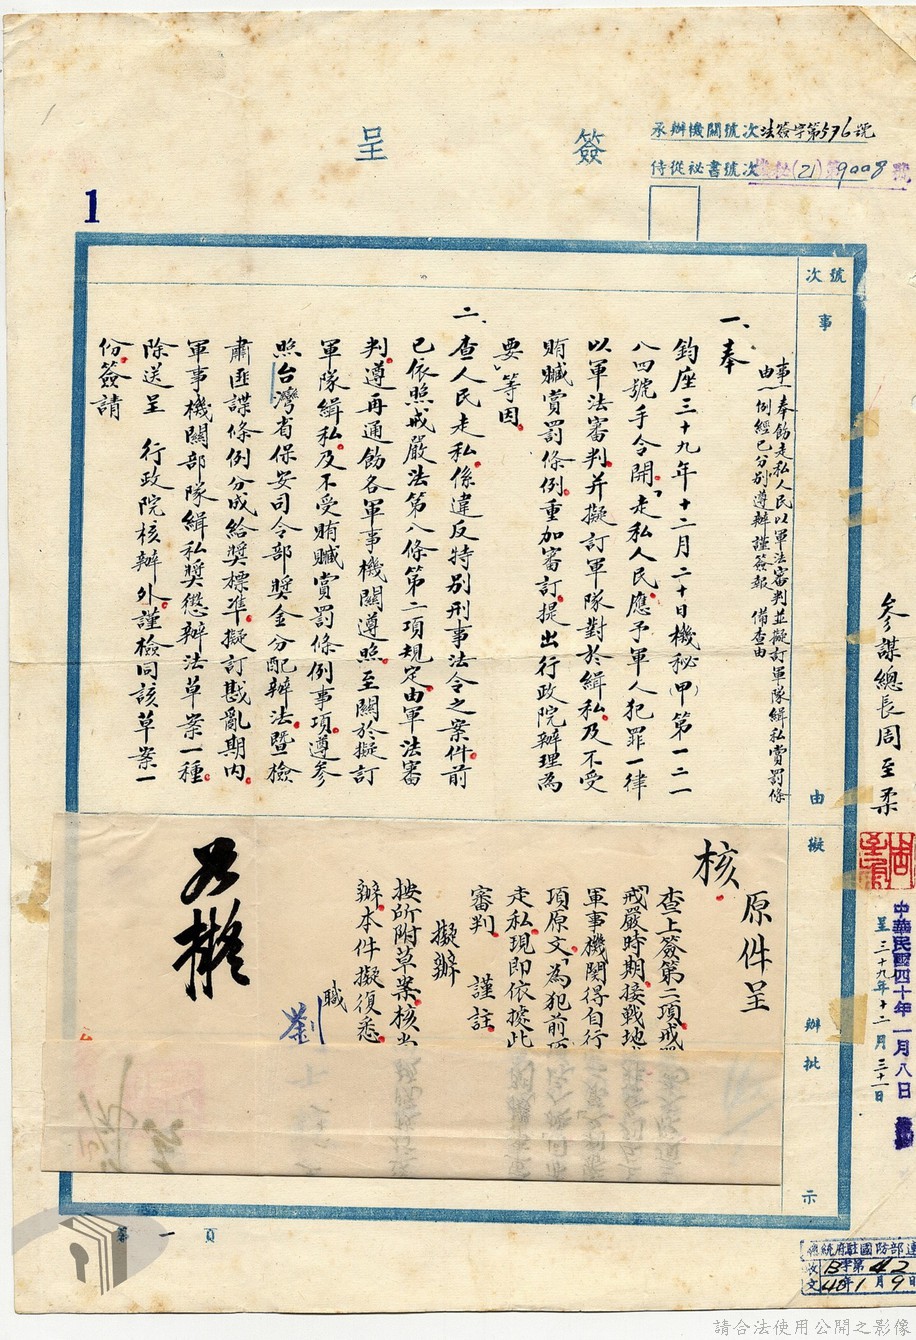 簽呈
承辦機關號次法簽字第576號
侍從祕書號次機秘(21)第9008號
1
號次
事由
擬辦
批示
參謀總長周至柔
呈三十九年十二月三十一日
中華民國四十年一月八日
事由
一奉飭走私人民以軍法審判並擬訂軍隊緝私賞罰條
例經已分別遵辦謹簽報 備查由
一、奉
鈞座三十九年十二月二十日機秘(甲)第一二一
八四號手令開「走私人民應予軍人犯罪一律
以軍法審判并擬訂軍隊對於緝私及不受
賄贓賞罰條例重加審訂提出行政院辦理為
要」等因
二、查人民走私係違反特別刑事法令之案件前
已依照戒嚴法第八條第二項規定由軍法審
判遵再通飭各軍事機關遵照至關於擬訂
軍隊緝私及不受賄贓賞罰條例事項遵參
照台灣省保安司令部獎金分配辦法暨檢
肅匪諜條例分成給獎標準擬訂戡亂期內
軍事機關部隊緝私獎懲辦法草案一種
除送呈 行政院核辦外謹檢同該草案一
份簽請
原件呈
核
查上簽第二項戒
「戒嚴時期接戰地
軍事機関得自行
項原文「為犯前項
走私現即依據此
審判 謹註
擬辦
按所附草案核尚
辦本件擬復悉
職
劉
如擬
第一頁
總統府駐國防部連
收文 B字第42
40年1月9日
請合法使用公開之影像